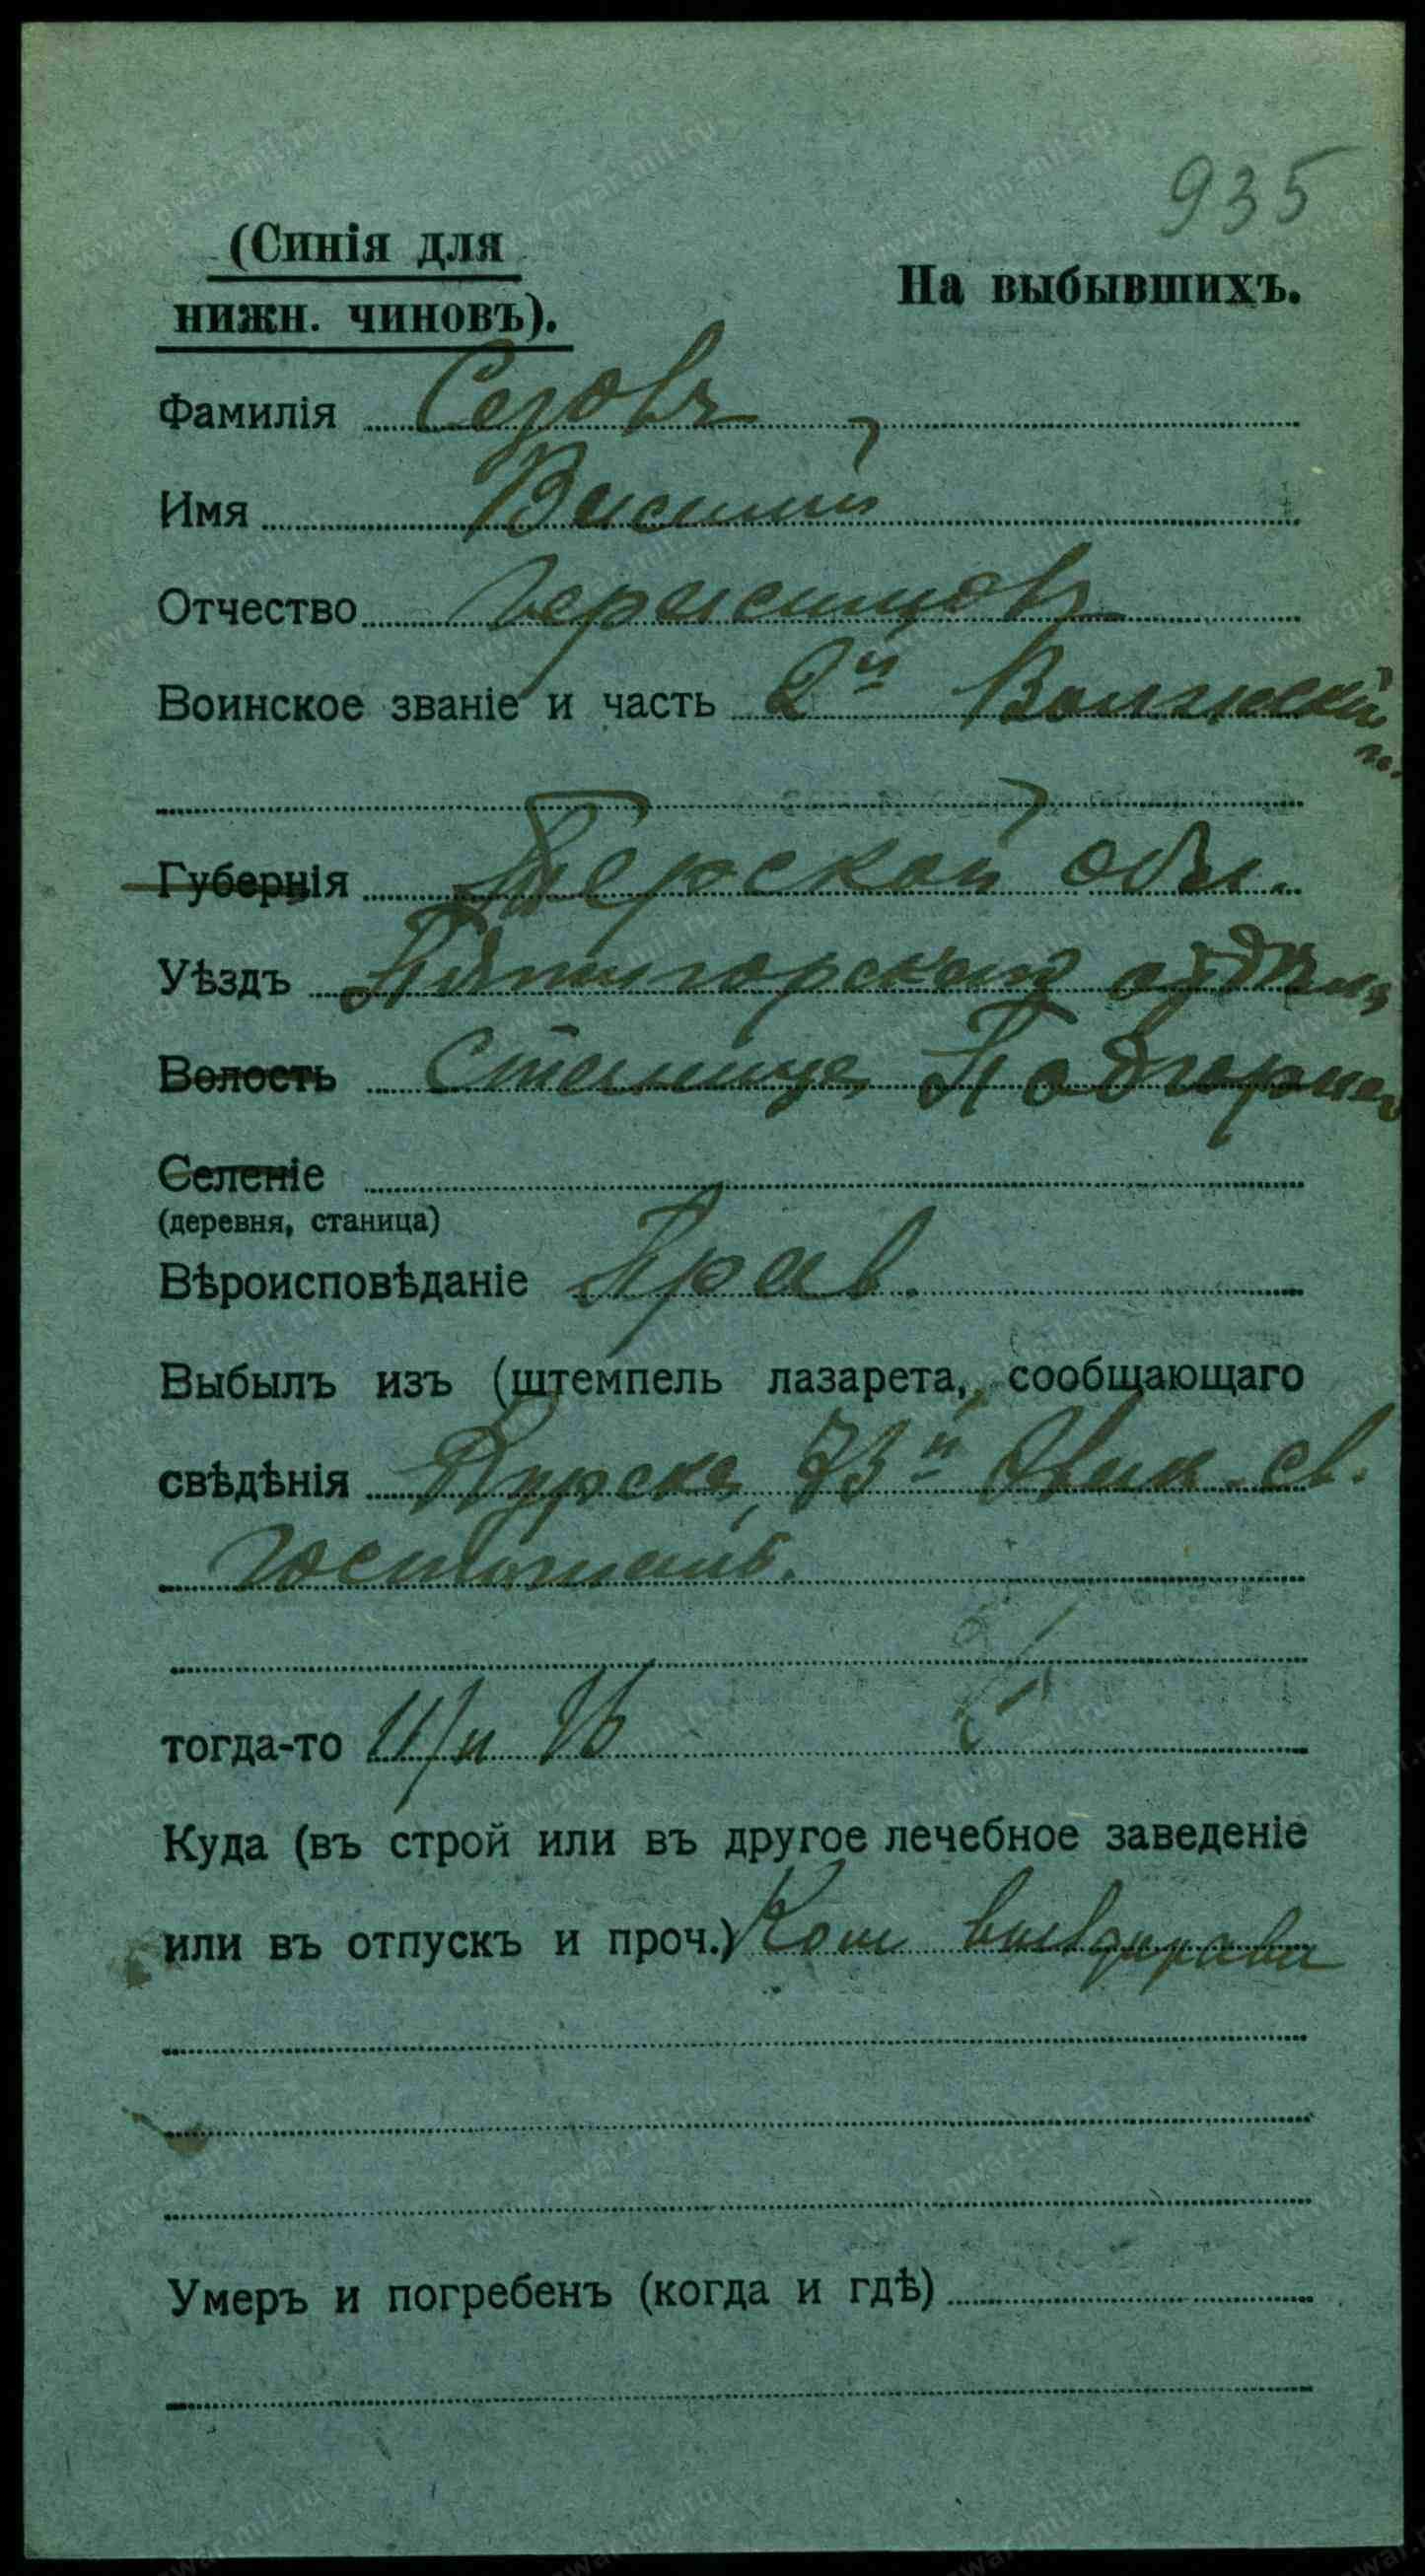 935
(Синія для
нижн. чиновъ).
На выбывшихъ.
Фамилія Сезовъ
Имя Василий
Отчество Герасимовъ
Воинское званіе и часть 2й Волгский
п.
Губернія Терской обл.
Уѣздъ Пятигорскаго отдѣла
Волость Станица Подгорная
Селеніе
(деревня, станица)
Вѣроисповѣданіе Прав.
Выбылъ изъ (штемпель лазарета, сообщающаго
свѣдѣнія Курскъ, 73й эвак. св.
госпиталь.
тогда-то 11/II 16
Куда (въ строй или въ другое лечебное заведеніе
или въ отпускъ и проч.) Ком выздорави
Умеръ и погребенъ (когда и гдѣ)